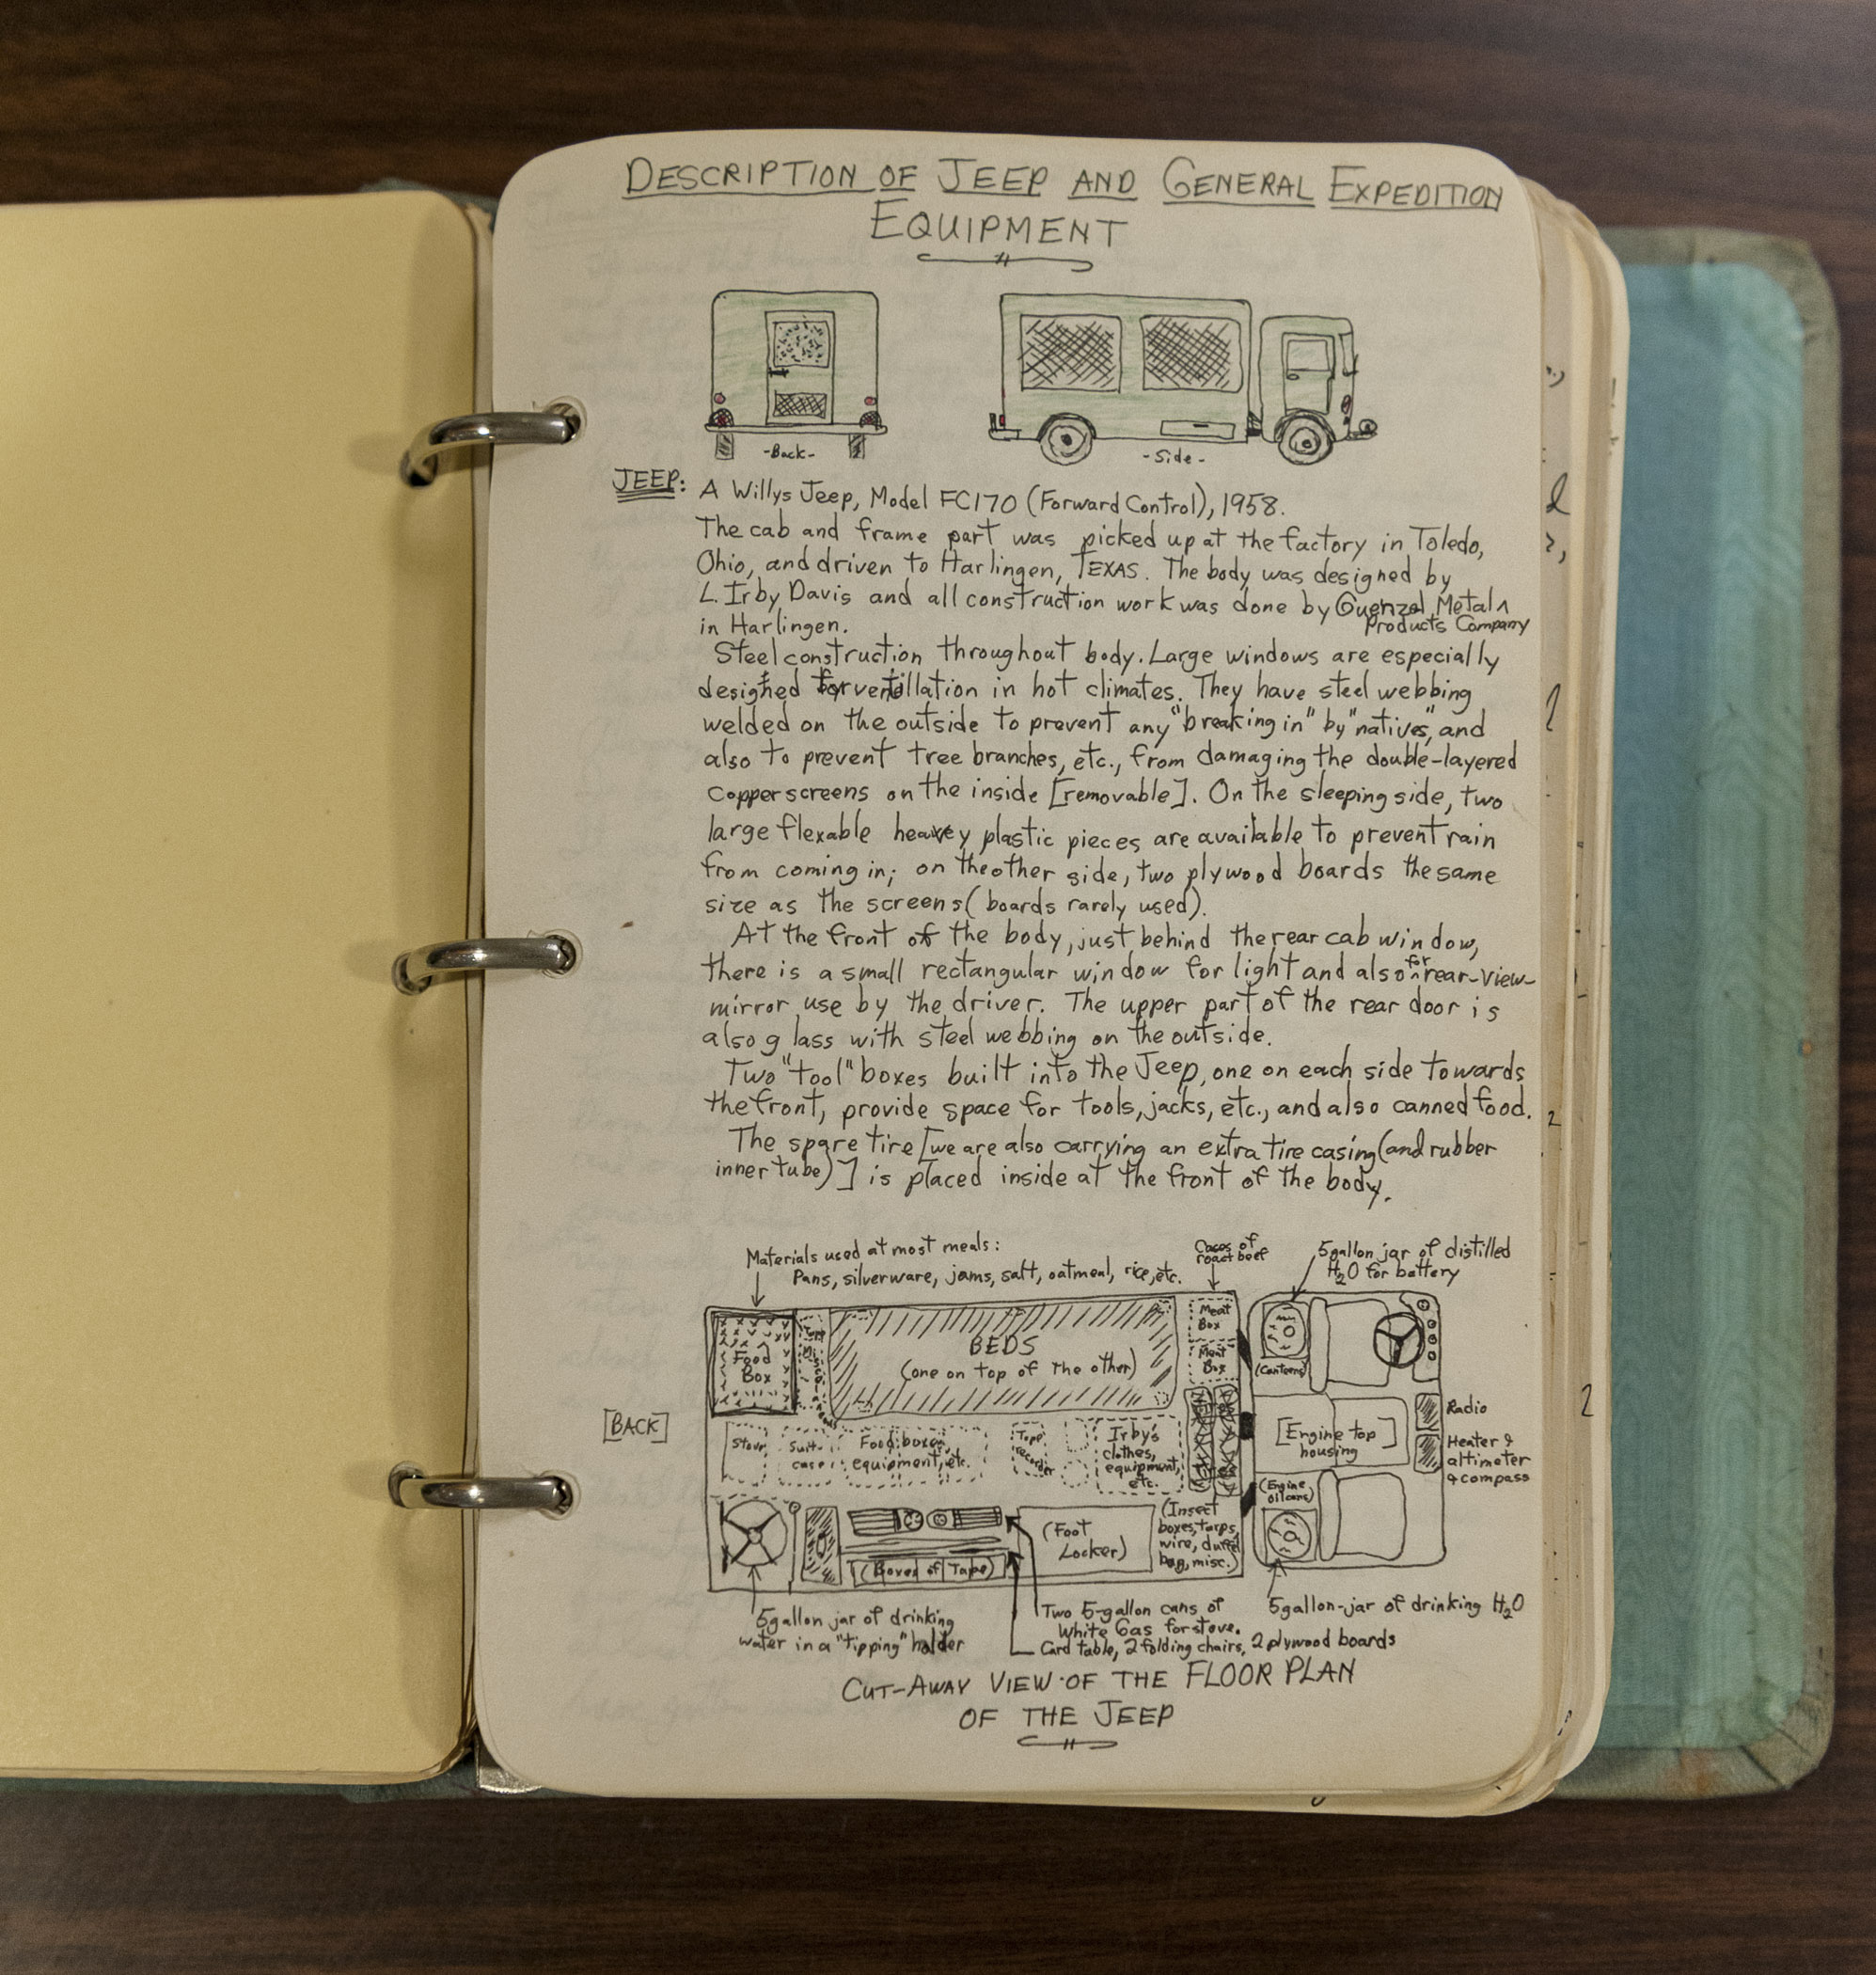 DESCRIPTION OF JEEP AND GENERAL EXPEDITION
EQUIPMENT
-Back-
-Side-
JEEP: A Willys Jeep, Model FC170 (Forward Control), 1958.
The cab and frame part was picked up at the factory in Toledo,
Ohio, and driven to Harlingen, TEXAS. The body was designed by
L. Irby Davis and all construction work was done by Guenzel Metal
Products Company
in Harlingen.
Steel construction throughout body. Large windows are especially
designed for ventillation in hot climates. They have steel webbing
welded on the outside to prevent any "breaking in" by "natives", and
also to prevent tree branches, etc., from damaging the double-layered
copper screens on the inside [removable]. On the sleeping side, two
large flexable heavy plastic pieces are available to prevent rain
from coming in; on the other side, two plywood boards the same
size as the screens (boards rarely used).
At the front of the body, just behind the rear cab window,
there is a small rectangular window for light and also for rear-view-
mirror use by the driver. The upper part of the rear door is
also glass with steel webbing on the outside.
Two "tool" boxes built into the Jeep, one on each side towards
the front, provide space for tools, jacks, etc., and also canned food.
The spare tire [we are also carrying an extra tire casing (and rubber
inner tube)] is placed inside at the front of the body.
Materials used at most meals:
Pans, silverware, jams, salt, oatmeal, rice, etc.
Cases of
roast beef
5 gallon jar of distilled
H2O for battery
Food
Box
BEDS
(one on top of the other)
Meat
Box
Meat
Box
(Canteens)
[BACK]
Stove
Suit-
case
Food boxes,
equipment, etc.
Tape
recorder
Irby's
clothes,
equipment,
etc.
[Engine top
housing]
Radio
Heater &
altimeter
& compass
(Engine
oil cans)
(Boxes of Tape)
(Foot
Locker)
(Insect
boxes, tarps,
wire, duffel
bag, misc.)
5 gallon jar of drinking
water in a "tipping" holder
Two 5-gallon cans of
White Gas for stove.
Card table, 2 folding chairs, 2 plywood boards
5 gallon-jar of drinking H2O
CUT-AWAY VIEW OF THE FLOOR PLAN
OF THE JEEP